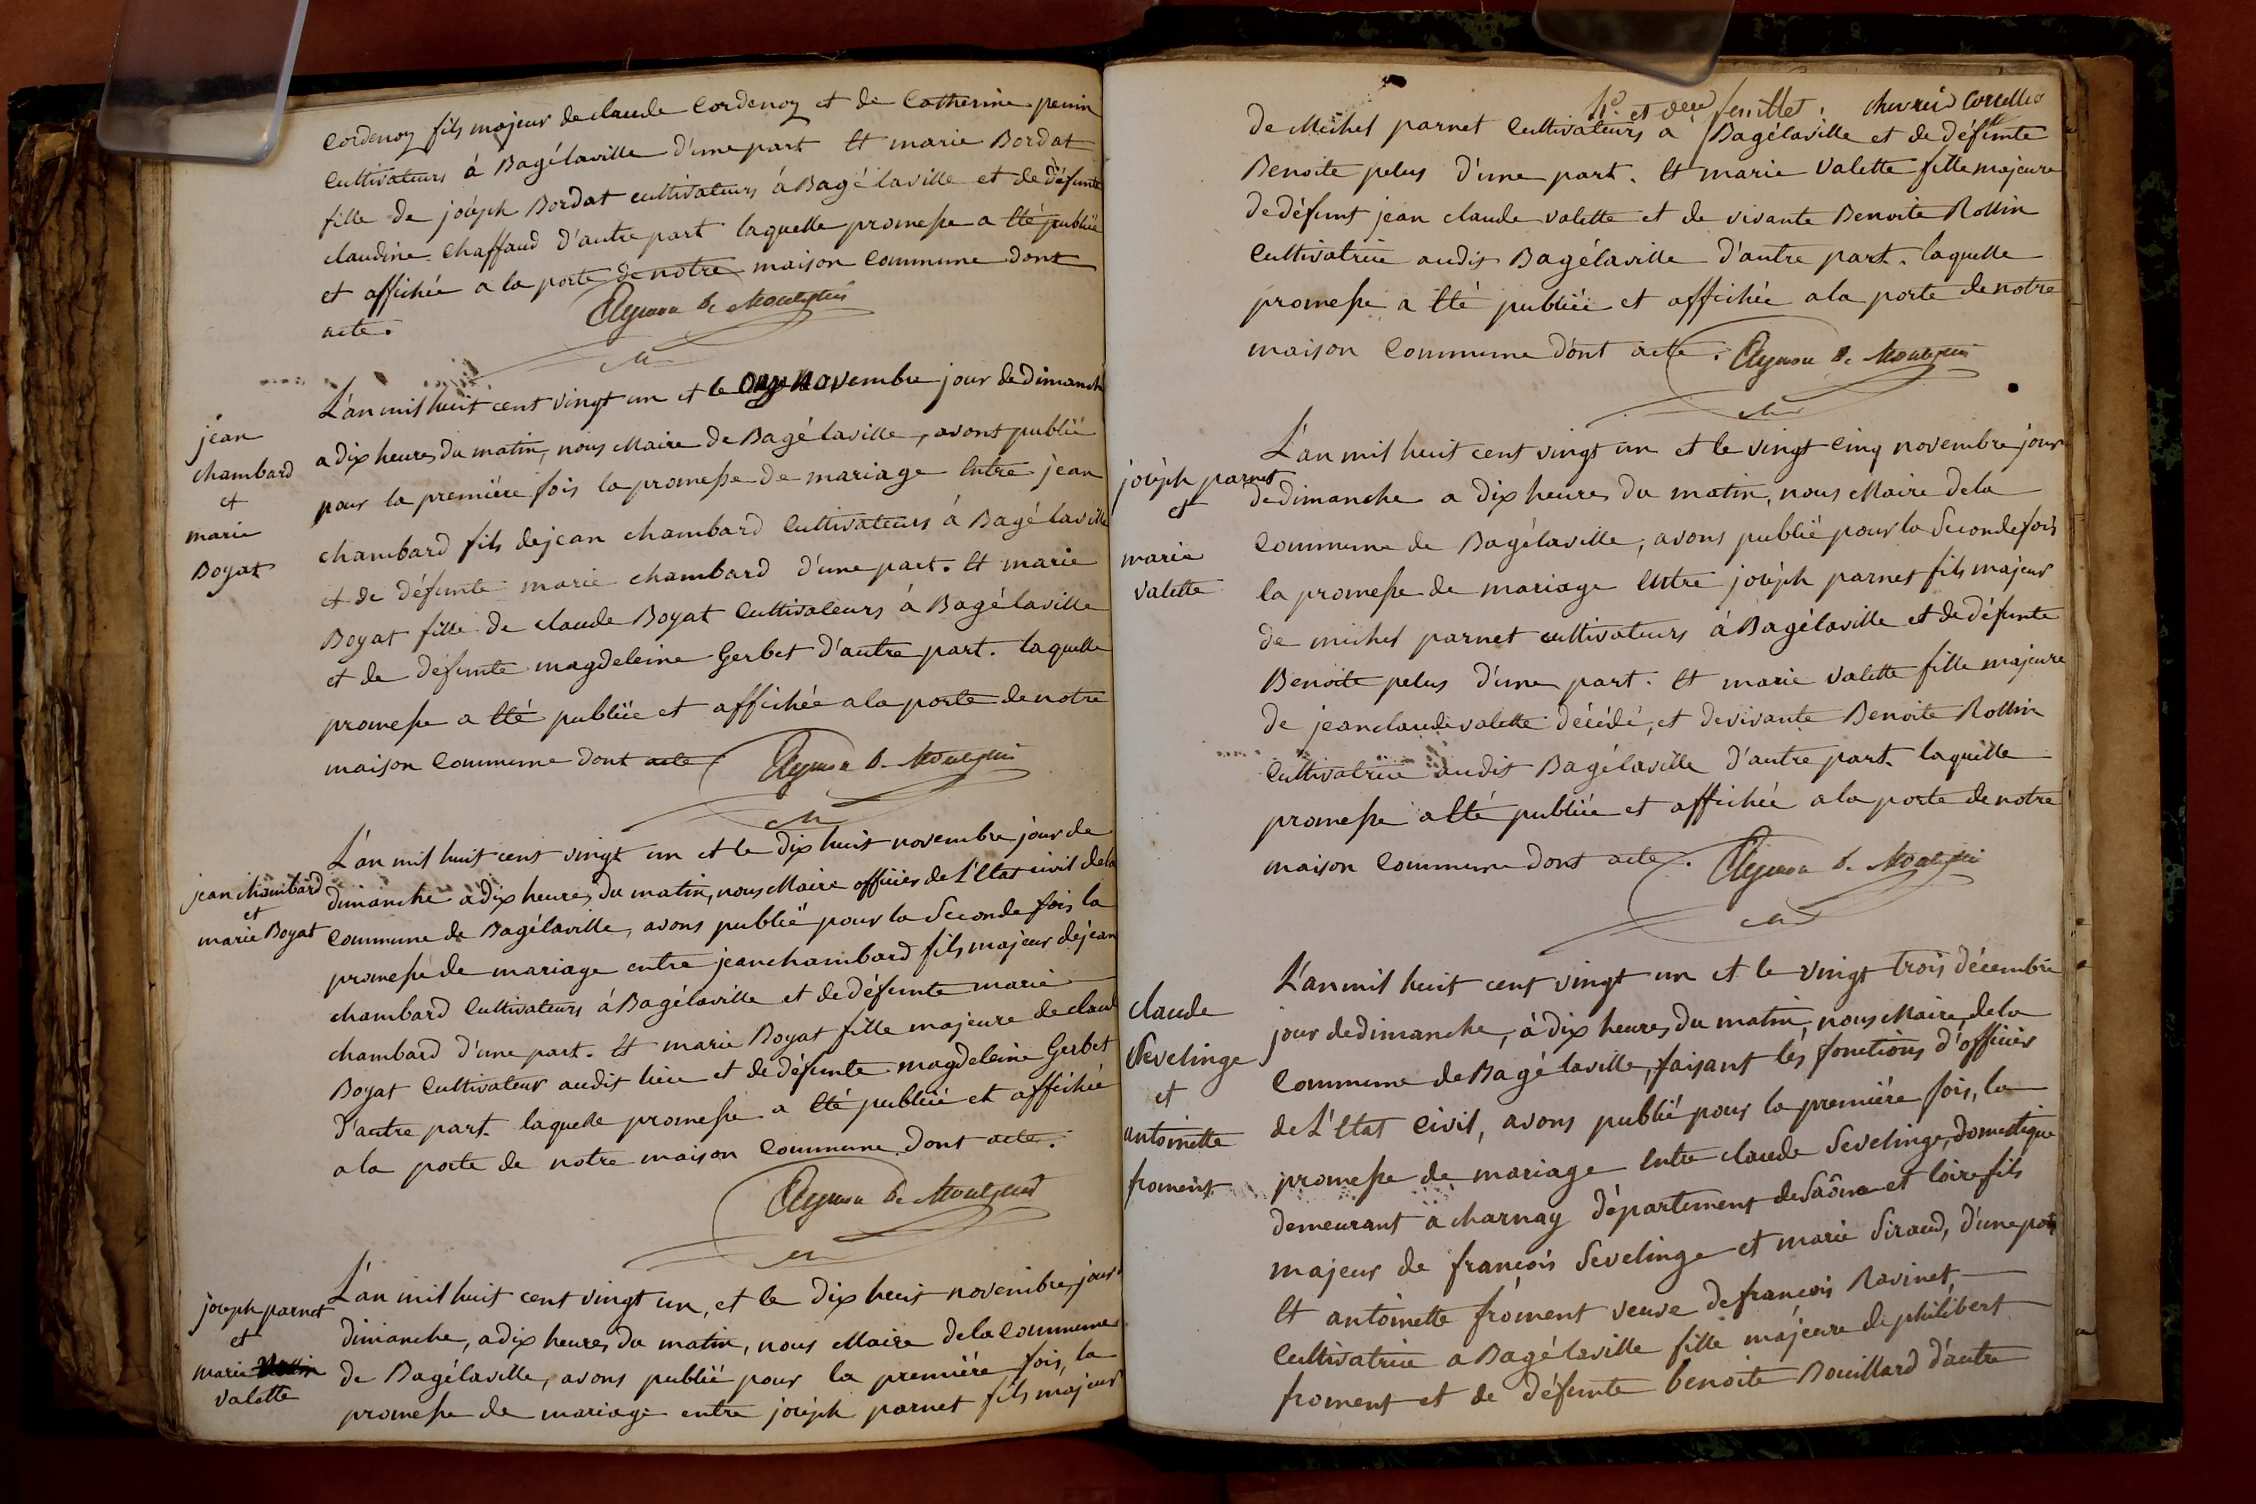 Cordenoy fils majeur de claude Cordenoy et de Catherine perrin
Cultivateurs á Bagélaville d'une part Et marie Bordat
fille de joséph Bordat cultivateurs á Bagé laville et de défunte
claudine Chaffaud d'autre part laquelle promesse a Eté publiée
et affichée a la porte de notre maison Commune dont
acte.
jean
chambard
et
marie
Boyat
L'an mil huit cent vingt un et le onze novembre jour de dimanche
a dix heures du matin, nous Maire de Bagé laville, avons publié
pour la premiére fois la promesse de mariage Entre jean
chambard fils de jean chambard Cultivateurs á Bagé laville
et de défunte marie chambard d'une part. Et marie
Boyat fille de claude Boyat Cultivateurs á Bagélaville
et de défunte magdeleine Gerbet d'autre part. laquelle
promesse a Eté publiée et affichée a la porte de notre
maison Commune dont acte
jean chambard
et
marie Boyat
L'an mil huit cent vingt un et le dix huit novembre jour de
dimanche a dix heures du matin, nous Maire officier de L'Etat civil de la
Commune de Bagélaville, avons publié pour la Seconde fois la
promesse de mariage entre jean chambard fils majeur de jean
chambard Cultivateurs á Bagélaville et de défunte marie
chambard d'une part. Et marie Boyat fille majeure de claude
Boyat Cultivateur audit lieu et de défunte magdeleine Gerbet
d'autre part. laquelle promesse a Eté publiée et affichée
a la porte de notre maison Commune dont acte.
joseph parnet
et
marie
valette
L'an mil huit cent vingt un, et le dix huit novembre, jour
dimanche, a dix heures du matin, nous Maire de la Commune
de Bagélaville, avons publié pour la premiére fois, la
promesse de mariage entre joséph parnet fils majeur
et feuillet.
de Michel parnet Cultivateurs a Bagélaville et de défunte
Benoite pelus d'une part. Et marie Valette fille majeure
de défunt jean claude valette et de vivante Benoite Rollin
Cultivatrice audit Bagélaville d'autre part. laquelle
promesse a Eté publiée et affichée a la porte de notre
maison Commune dont acte.
joséph parnet
et
marie
valette
L'an mil huit cent vingt un et le vingt Cinq novembre jour
de dimanche a dix heures du matin, nous Maire de la
Commune de Bagélaville, avons publié pour la Seconde fois
la promesse de mariage Entre joséph parnet fils majeur
de michel parnet cultivateurs á Bagélaville et de défunte
Benoite pelus d'une part. Et marie Valette fille majeure
de jean claude valette décédé, et de vivante Benoite Rollin
Cultivatrice audit Bagélaville d'autre part. laquelle
promesse a Eté publiée et affichée a la porte de notre
maison Commune dont acte.
claude
Sevelinge
et
antoinette
froment
L'an mil huit cent vingt un et le vingt trois décembre
jour de dimanche, á dix heures du matin, nous Maire de la
Commune de Bagé laville, faisant les fonctions d'officier
de L'Etat Civil, avons publié pour la premiére fois, la
promesse de mariage Entre claude Sevelinge, domestique
demeurant a charnay département de Saône et loire fils
majeur de françois Sevelinge et marie Siraud, d'une part
Et antoinette froment veuve de françois Ravinet,
Cultivatrice a Bagé laville fille majeure de philibert
froment et de défunte benoite Bouillard d'autre